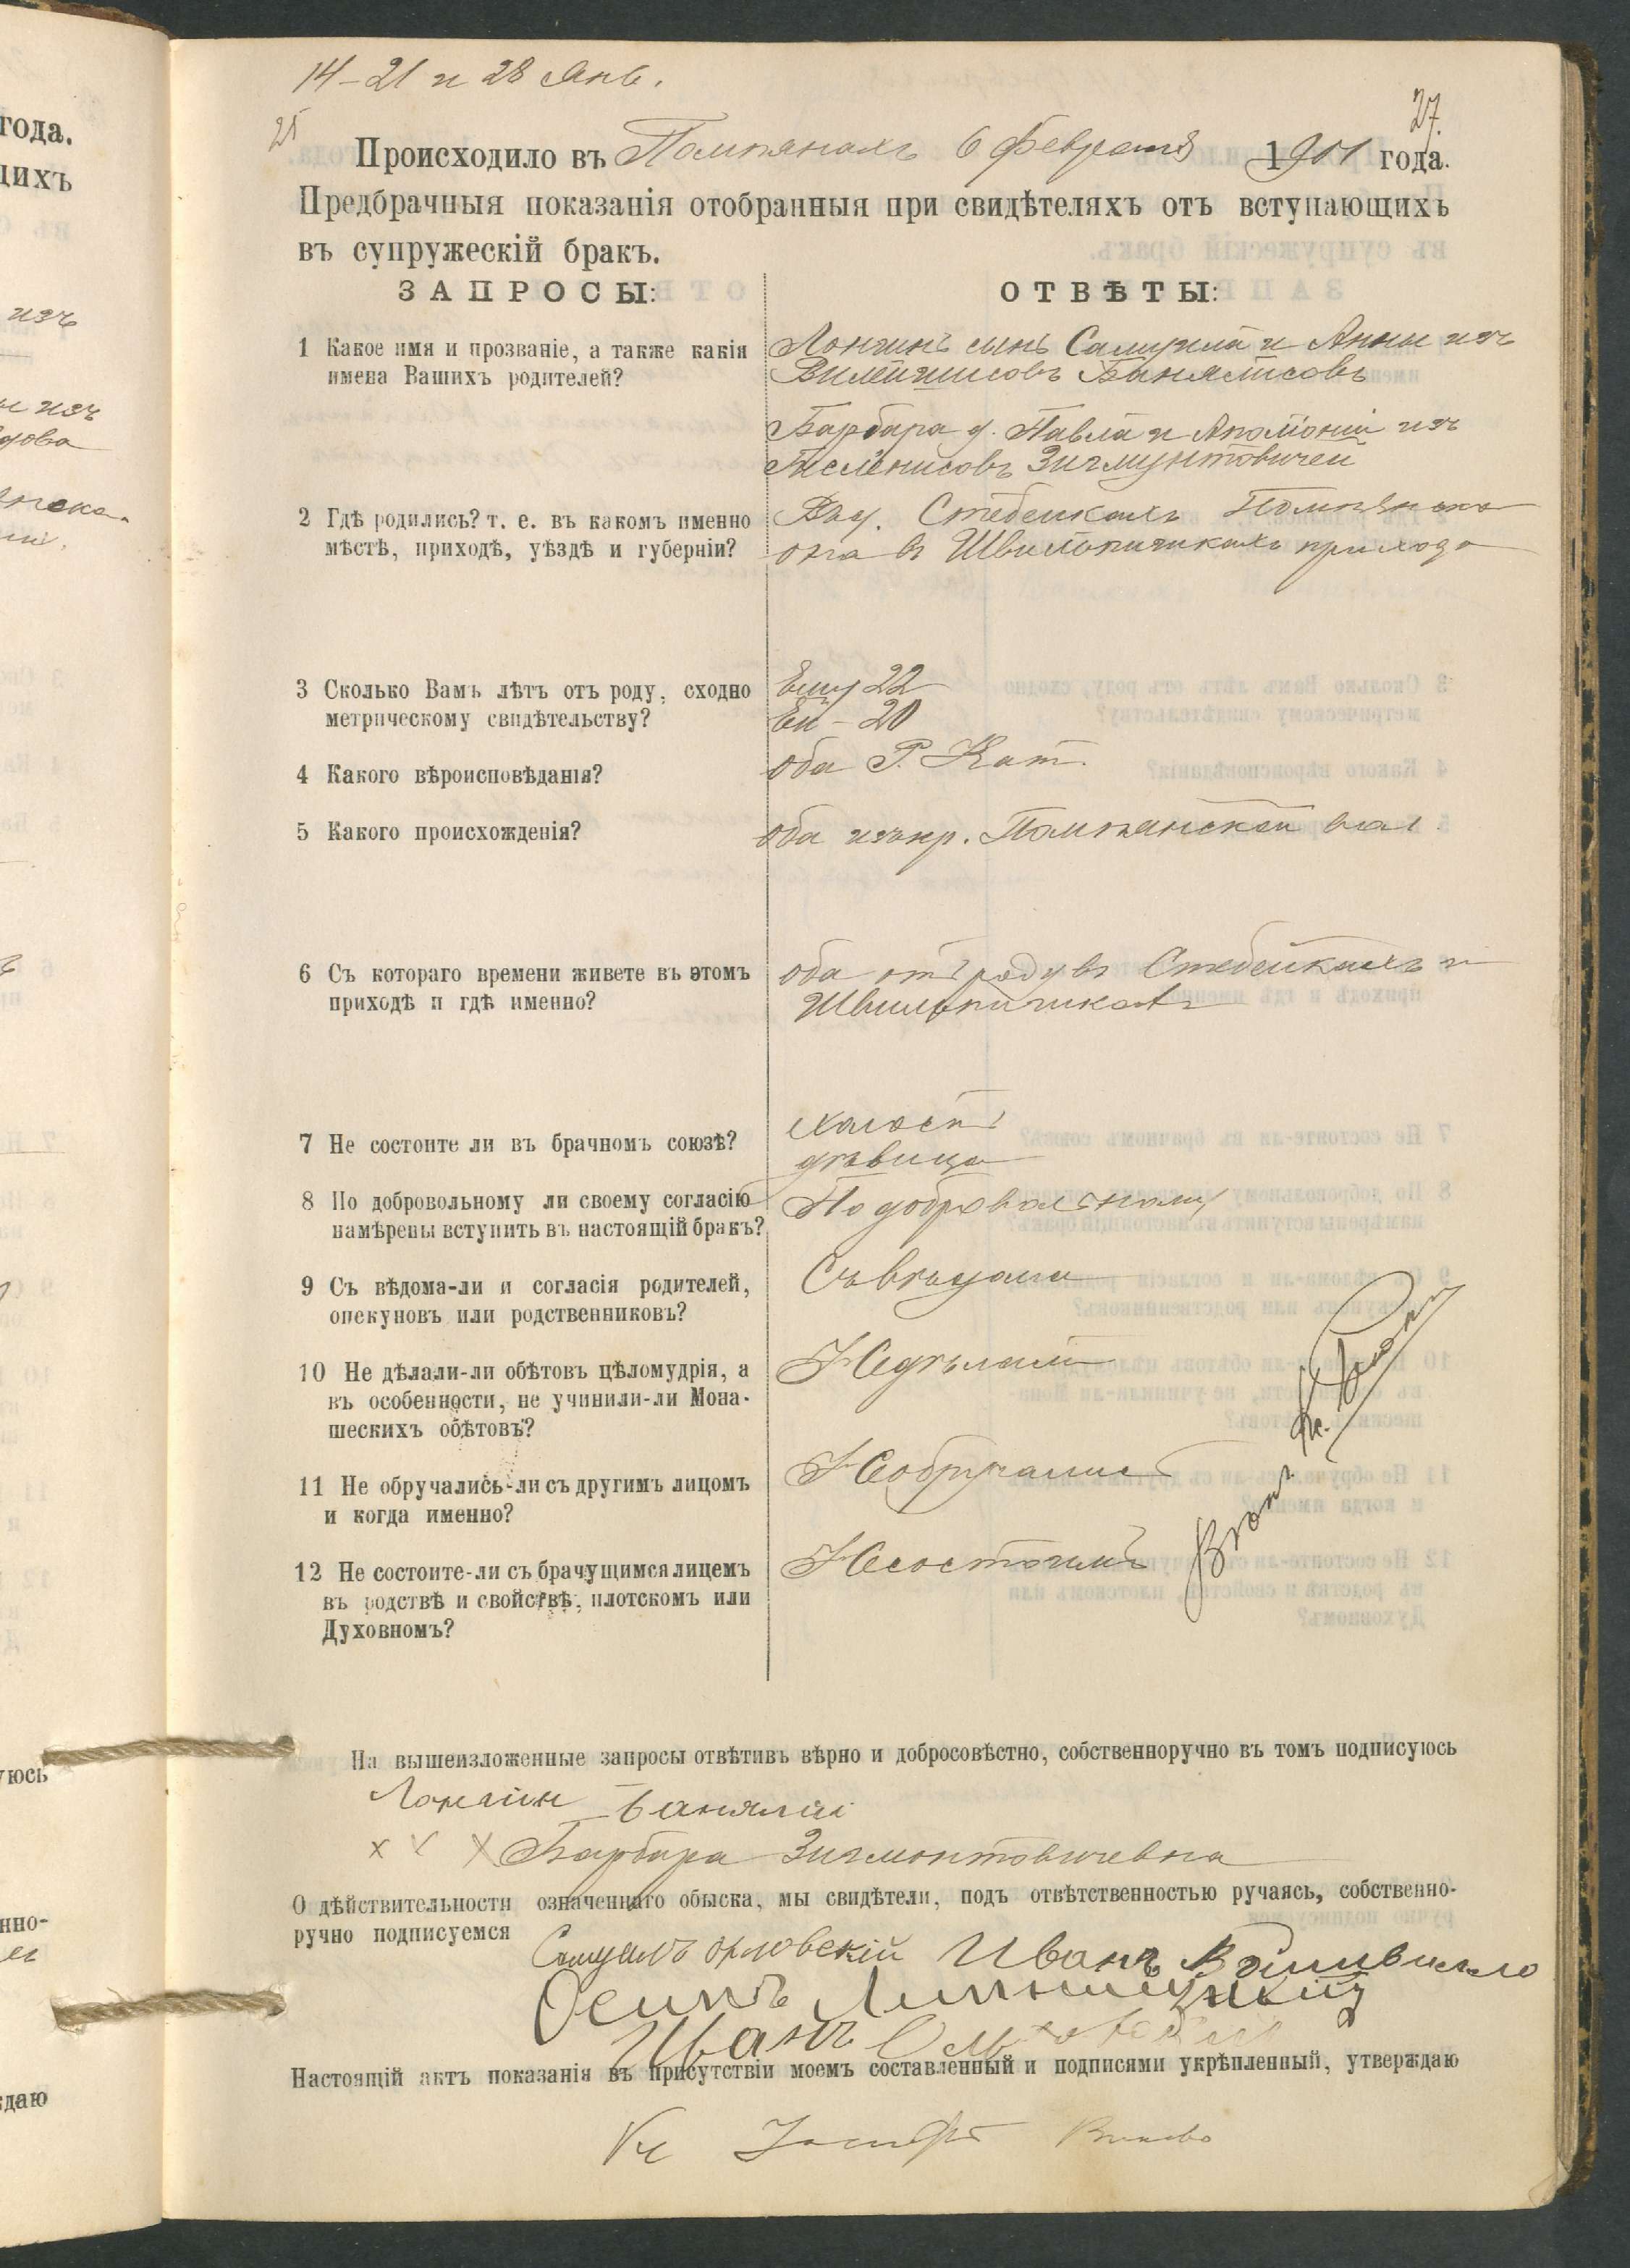 14-21 и 28 Янв.
25
27.
Происходило въ Помпянахъ 6 Февраля 1901 года.
Предбрачныя показанія отобранныя при свидѣтеляхъ отъ вступающихъ
въ супружескій бракъ.
ЗАПРОСЫ:
ОТВѢТЫ:
1 Какое имя и прозваніе, а также какія
имена Вашихъ родителей?
Лонгинъ сынъ Самуила и Анны изъ
Вилейшисовъ Банялисовъ
Барбара д. Павла и Аполоніи изъ
Зигмунтовичей
2 Гдѣ родились? т. е. въ какомъ именно
мѣстѣ, приходѣ, уѣздѣ и губерніи?
Стебейкахъ
она въ Швильпишкахъ прихода
3 Сколько Вамъ лѣтъ отъ роду, сходно
метрическому свидѣтельству?
Ему 22
Ей - 20
4 Какого вѣроисповѣданія?
оба Р. Кат.
5 Какого происхожденія?
оба изъ кр. Помпянской вол.
6 Съ котораго времени живете въ этомъ
приходѣ и гдѣ именно?
оба отъ роду въ Стебейкахъ и
Швильпишкахъ
7 Не состоите ли въ брачномъ союзѣ?
холостъ
дѣвица
8 По добровольному ли своему согласію
намѣрены вступить въ настоящій бракъ?
По добровольному
9 Съ вѣдома-ли и согласія родителей,
опекуновъ или родственниковъ?
Съ вѣдома
10 Не дѣлали-ли обѣтовъ цѣломудрія, а
въ особенности, не учинили-ли Мона-
шескихъ обѣтовъ?
Не дѣлали
11 Не обручались-ли съ другимъ лицомъ
и когда именно?
Не обручались
12 Не состоите-ли съ брачущимся лицемъ
въ родствѣ и свойствѣ, плотскомъ или
Духовномъ?
Не состоимъ
На вышеизложенные запросы отвѣтивъ вѣрно и добросовѣстно, собственноручно въ томъ подписуюсь
Лонгин Банялис
x x x Барбара Зигмонтовичевна
О дѣйствительности означеннаго обыска, мы свидѣтели, подъ отвѣтственностью ручаясь, собственно-
ручно подписуемся
Самуилъ Орловскій Иванъ
Осипъ
Иванъ
Настоящій актъ показанія въ присутствіи моемъ составленный и подписями укрѣпленный, утверждаю